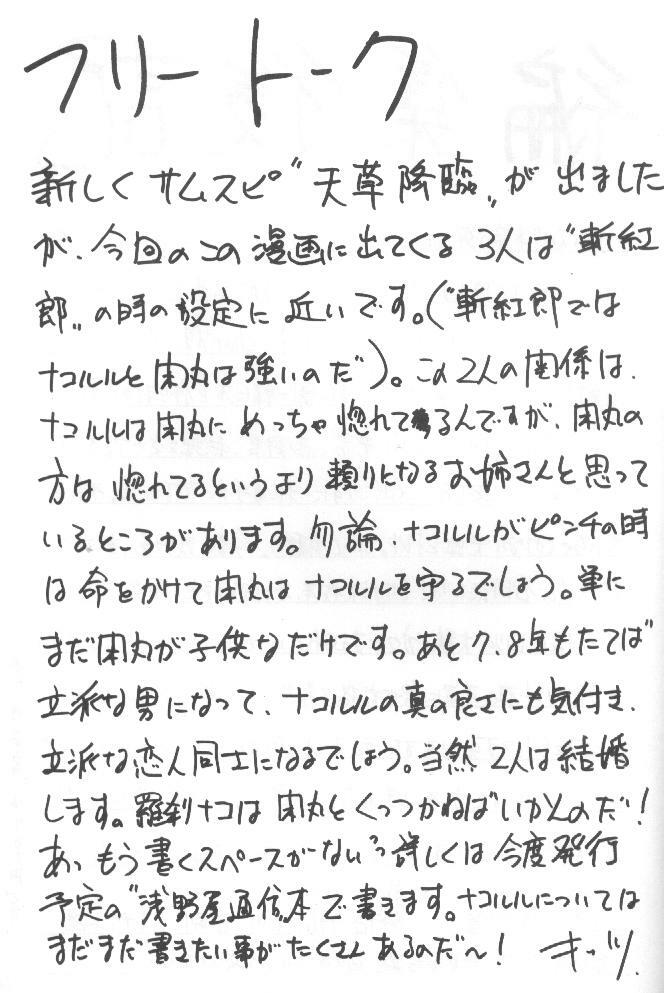 フリートーク
新しくサムスピ〝天草降臨〟が出ました
が、今回のこの漫画に出てくる3人は〝斬紅
郎〟の時の設定に近いです。(〝斬紅郎では
ナコルルと閑丸は強いのだ)。この2人の関係は、
ナコルルは閑丸にめっちゃ惚れてるんですが、閑丸の
方は惚れてるというより頼りになるお姉さんと思って
いるところがあります。勿論、ナコルルがピンチの時
は命をかけて閑丸はナコルルを守るでしょう。単に
まだ閑丸が子供なだけです。あと7、8年もたてば
立派な男になって、ナコルルの真の良さにも気付き、
立派な恋人同士になるでしょう。当然2人は結婚
します。羅刹ナコは閑丸とくっつかねばいかんのだ!
あっもう書くスペースがないっ詳しくは今度発行
予定の〝浅野屋通信〟本で書きます。ナコルルについては
まだまだ書きたい事がたくさんあるのだ〜!